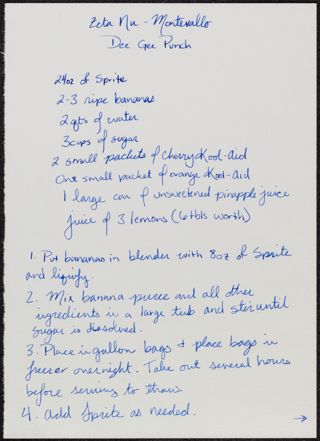 Zeta Nu - Montevallo
Dee Gee Punch
24oz of Sprite
2-3 ripe bananas
2 qts of water
3 cups of sugar
2 small packets of cherry Kool-Aid
One small packet of orange Kool-Aid
1 large can of unsweetened pineapple juice
juice of 3 lemons (6 tbls worth)
1. Put bananas in blender with 8oz of Sprite
and liquify.
2. Mix banana puree and all other
ingredients in a large tub and stir until
sugar is dissolved.
3. Place in gallon bags & place bags in
freezer overnight. Take out several hours
before serving to thaw.
4. Add Sprite as needed.
→